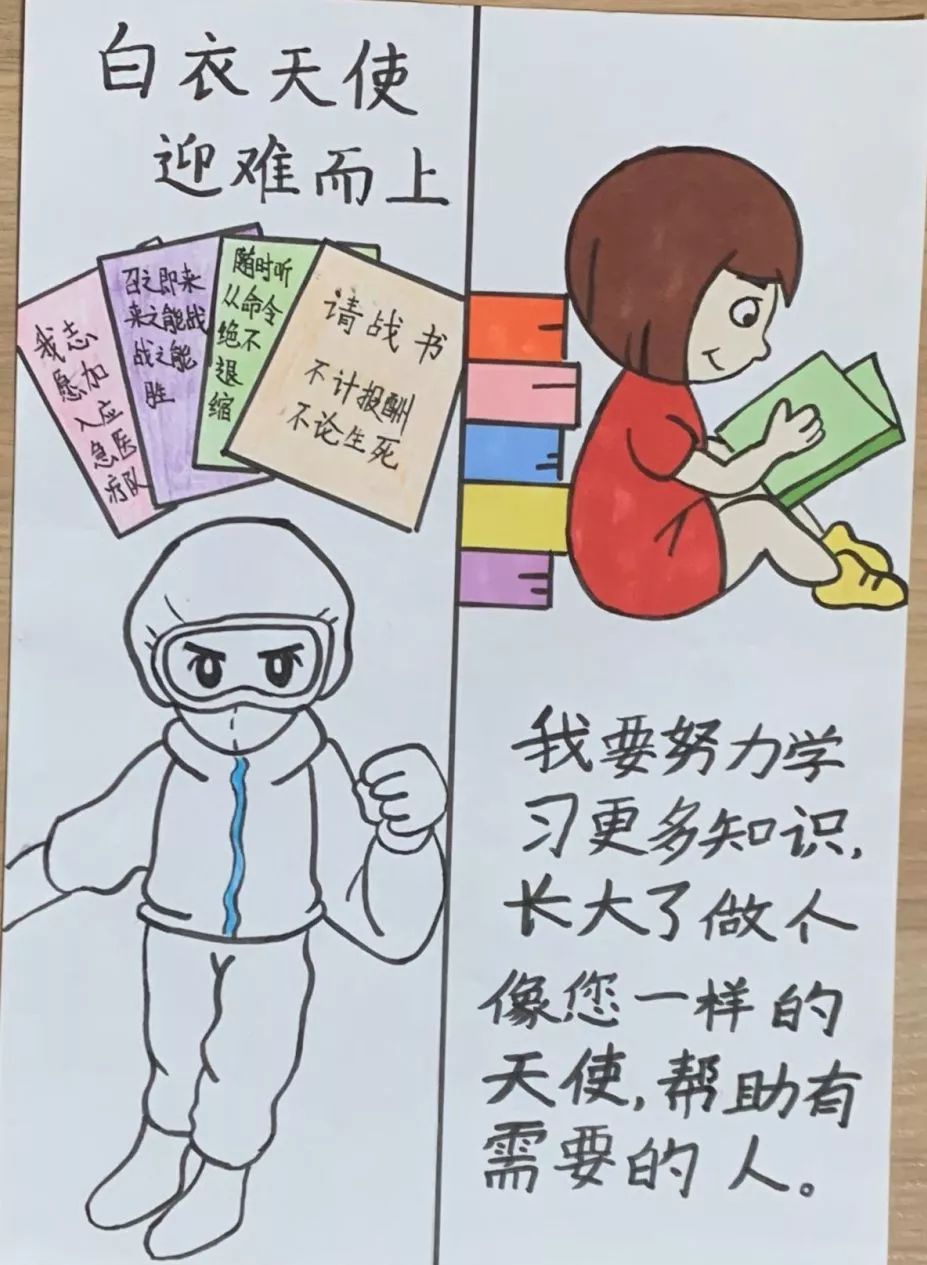 白衣天使
迎难而上
我志
愿加
入应
急医
疗队
召之即来
来之能战
战之能
胜
随时听
从命令
绝不
退
缩
请战书
不计报酬
不论生死
我要努力学
习更多知识,
长大了做个
像您一样的
天使,帮助有
需要的人。